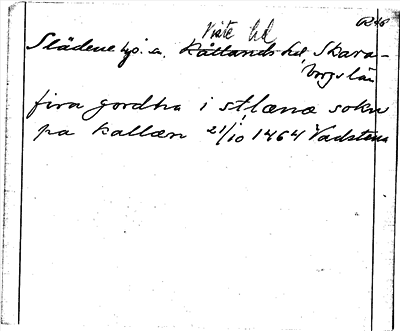 Viste hd
Slädene sn. Kållands hd, Skara-
borgs län
fira gordha i slæna sokn
pa kallæn 21/10 1464 Vadstena